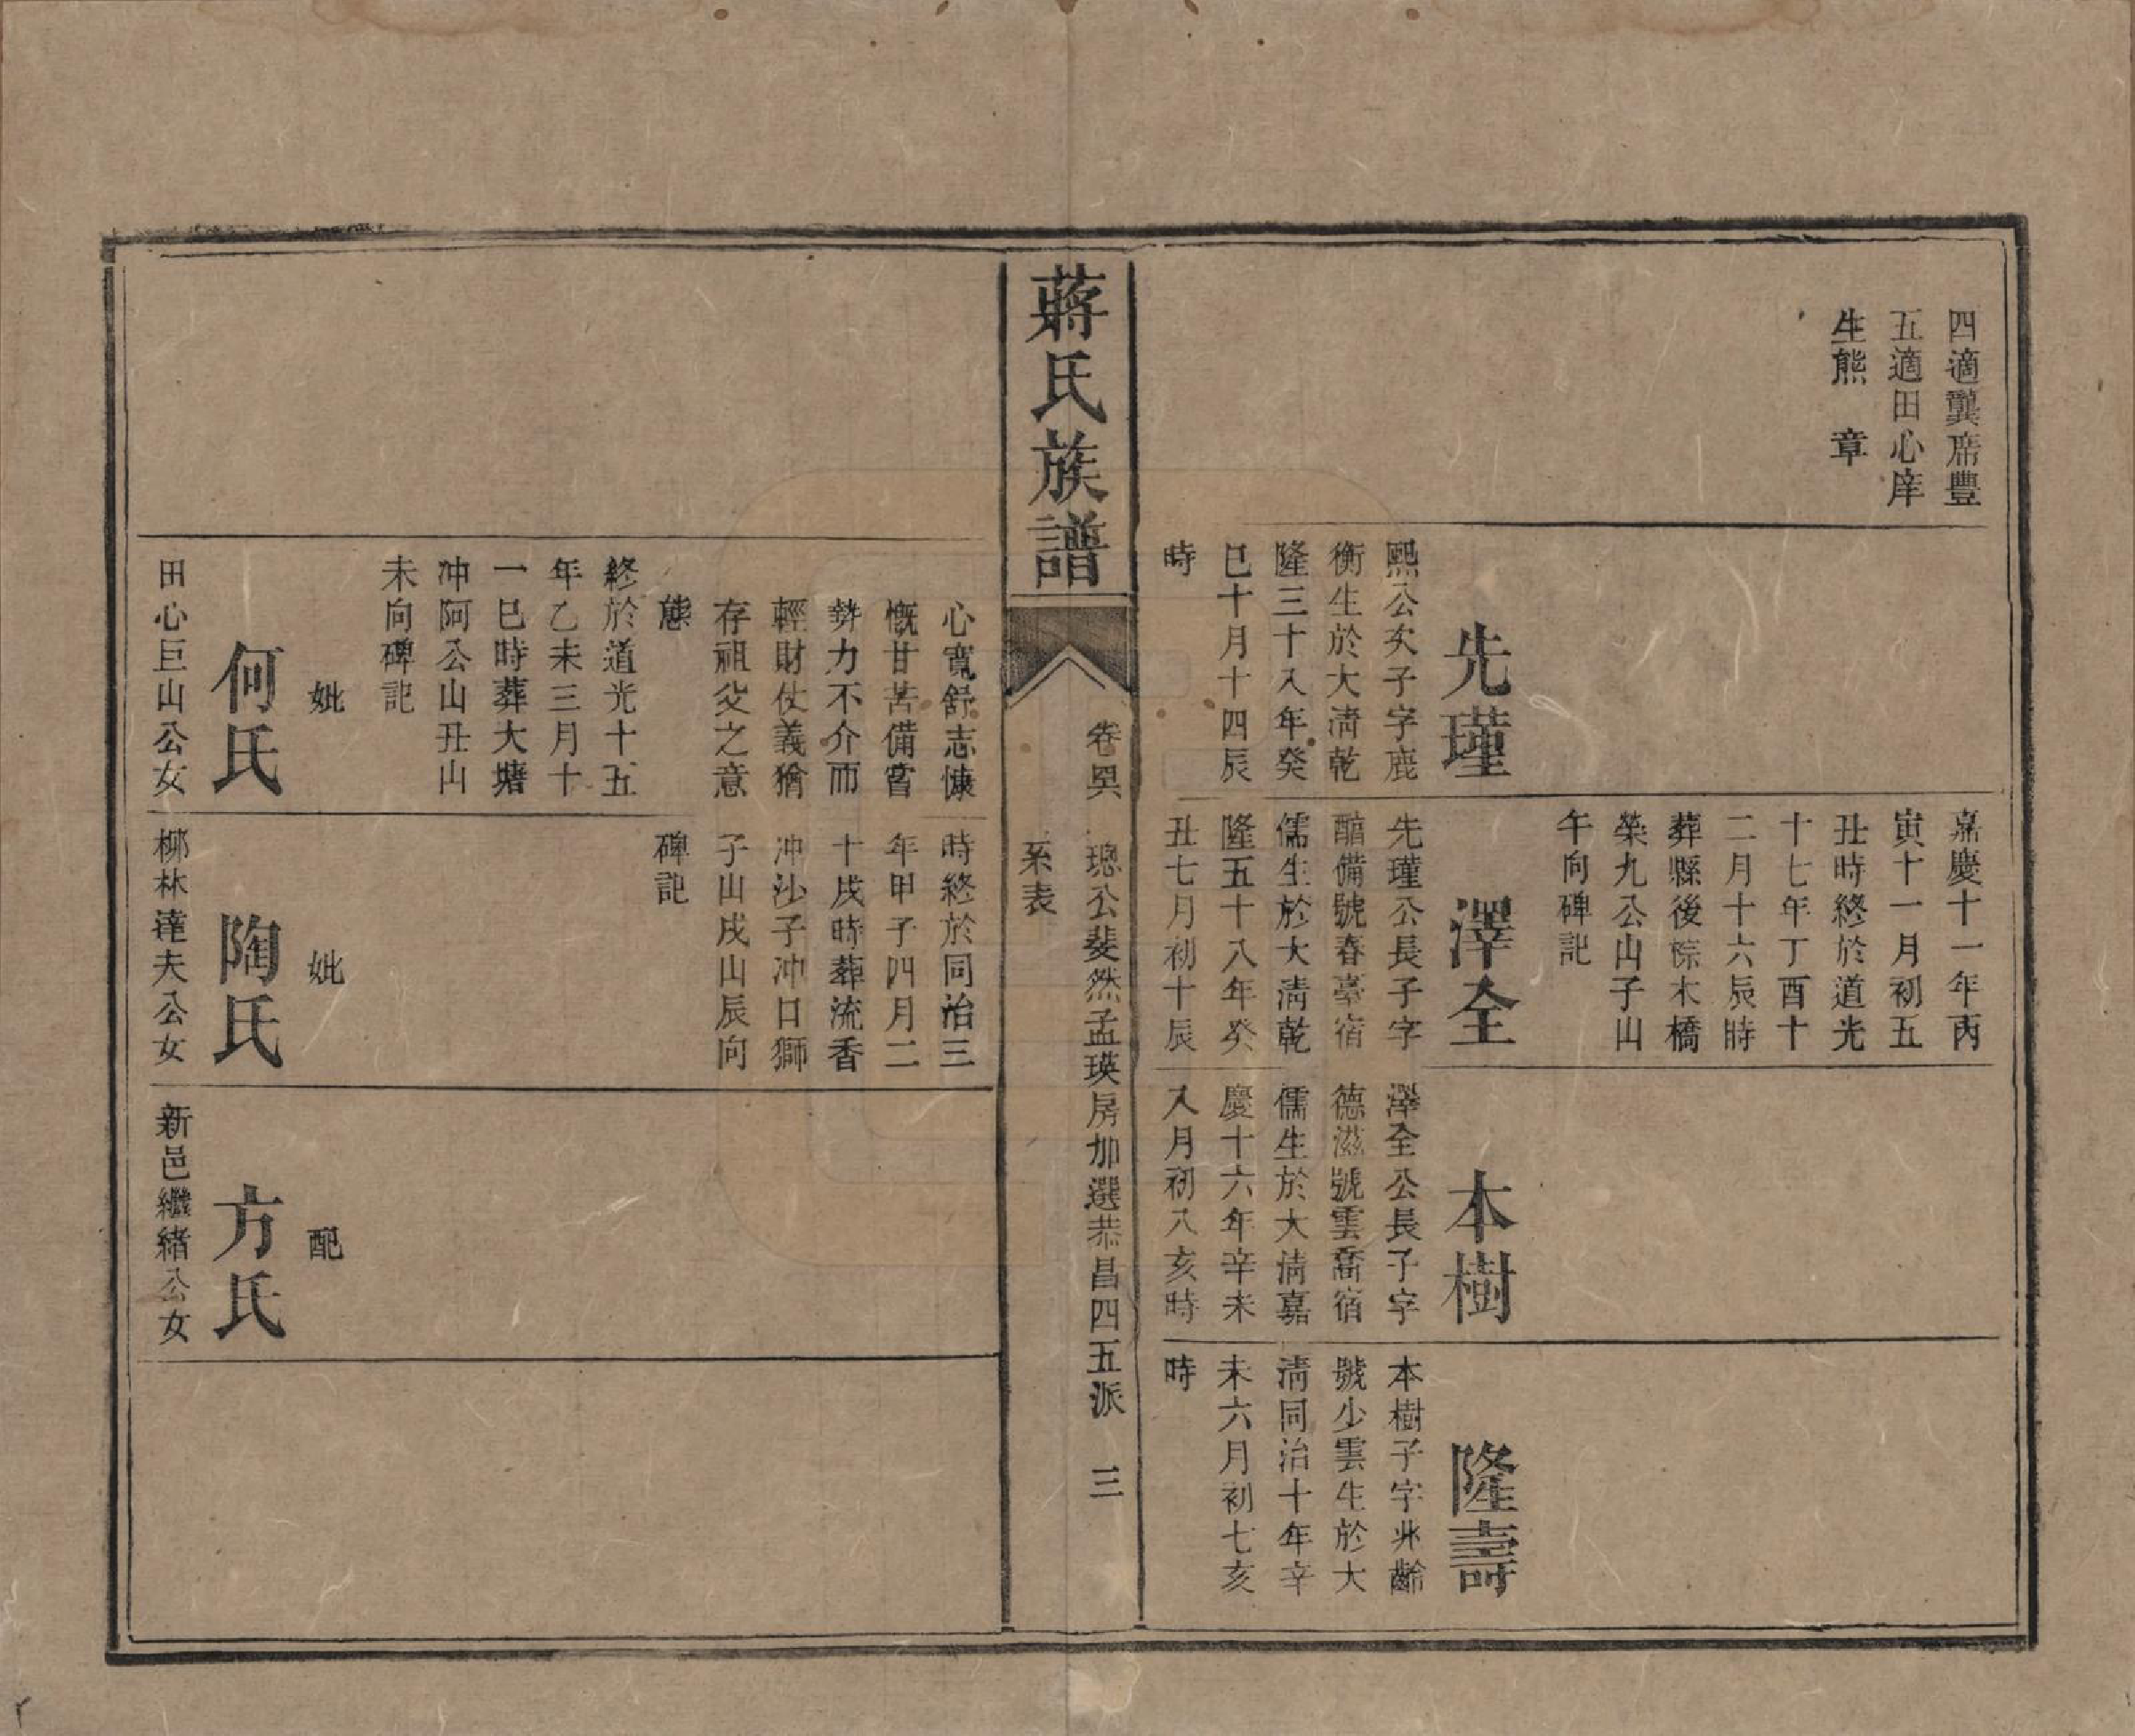 四適龔席豐
五適田心庠
生熊 章
先瑾
熙公次子字鹿
衡生於大淸乾
隆三十八年癸
巳十月十四辰
時
嘉慶十一年丙
寅十一月初五
丑時終於道光
十七年丁酉十
二月十六辰時
葬縣後棕木橋
榮九公山子山
午向碑記
澤全
先瑾公長子字
醕備號春臺宿
儒生於大淸乾
隆五十八年癸
丑七月初十辰
本樹
澤全公長子字
德滋號雲喬宿
儒生於大淸嘉
慶十六年辛未
八月初八亥時
隆壽
本樹子字兆齡
號少雲生於大
淸同治十年辛
未六月初七亥
時
蔣氏族譜
卷 璁公斐然孟瑛房加選恭昌四五派 三
系表
心寬舒志慷
慨甘苦備嘗
勢力不介而
輕財仗義猶
存祖父之意
態
終於道光十五
年乙未三月十
一巳時葬大塘
冲阿公山丑山
未向碑記
妣
何氏
田心巨山公女
時終於同治三
年甲子四月二
十戌時葬流香
冲沙子冲口獅
子山戌山辰向
碑記
妣
陶氏
柳林達夫公女
配
方氏
新邑繼緒公女